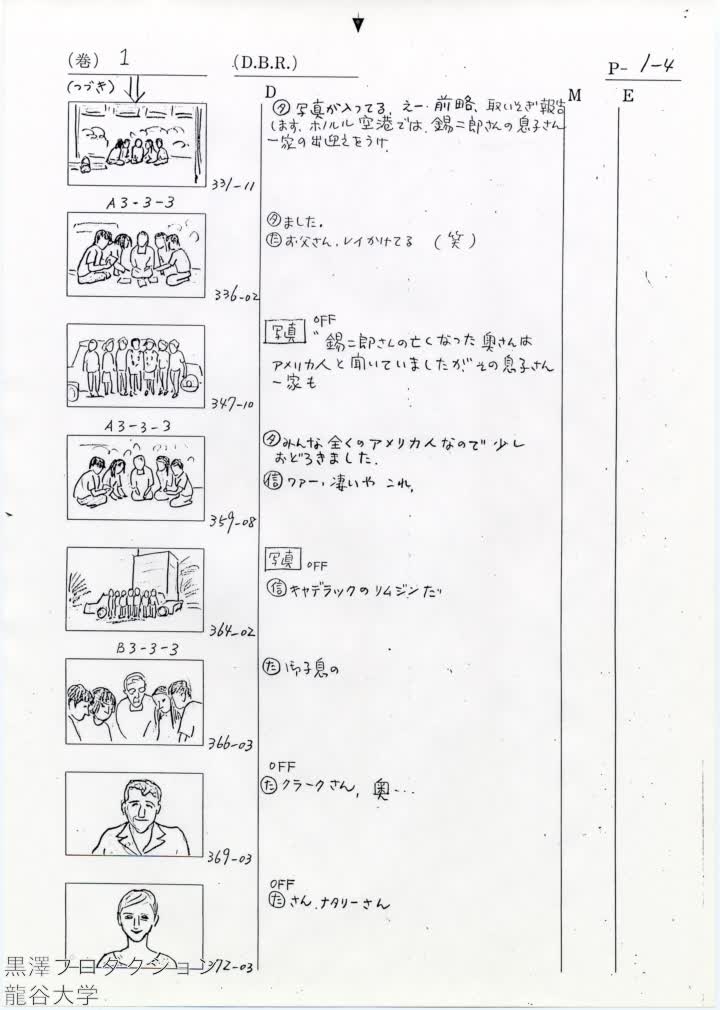 (巻) 1
(D.B.R.)
P- 1-4
(つづき)
D
M
E
タ 写真が入ってる、えー・前略、取いそぎ報告
します、ホノルル空港では、錫二郎さんの息子さん
一家の出迎えをうけ
331-11
A3-3-3
タ ました。
た お父さん、レイかけてる (笑)
336-02
写真 OFF
〃錫二郎さんの亡くなった奥さんは
アメリカ人と聞いていましたが その息子さん
一家も
347-10
A3-3-3
タ みんな全くのアメリカ人なので少し
おどろきました。
信 ワァー、凄いや これ。
359-08
写真 OFF
信 キャデラックのリムジンだ〃
364-02
B3-3-3
た 御子息の
366-03
OFF
た クラークさん, 奥・・・
369-03
OFF
た さん、ナタリーさん
372-03
黒澤プロダクション
龍谷大学